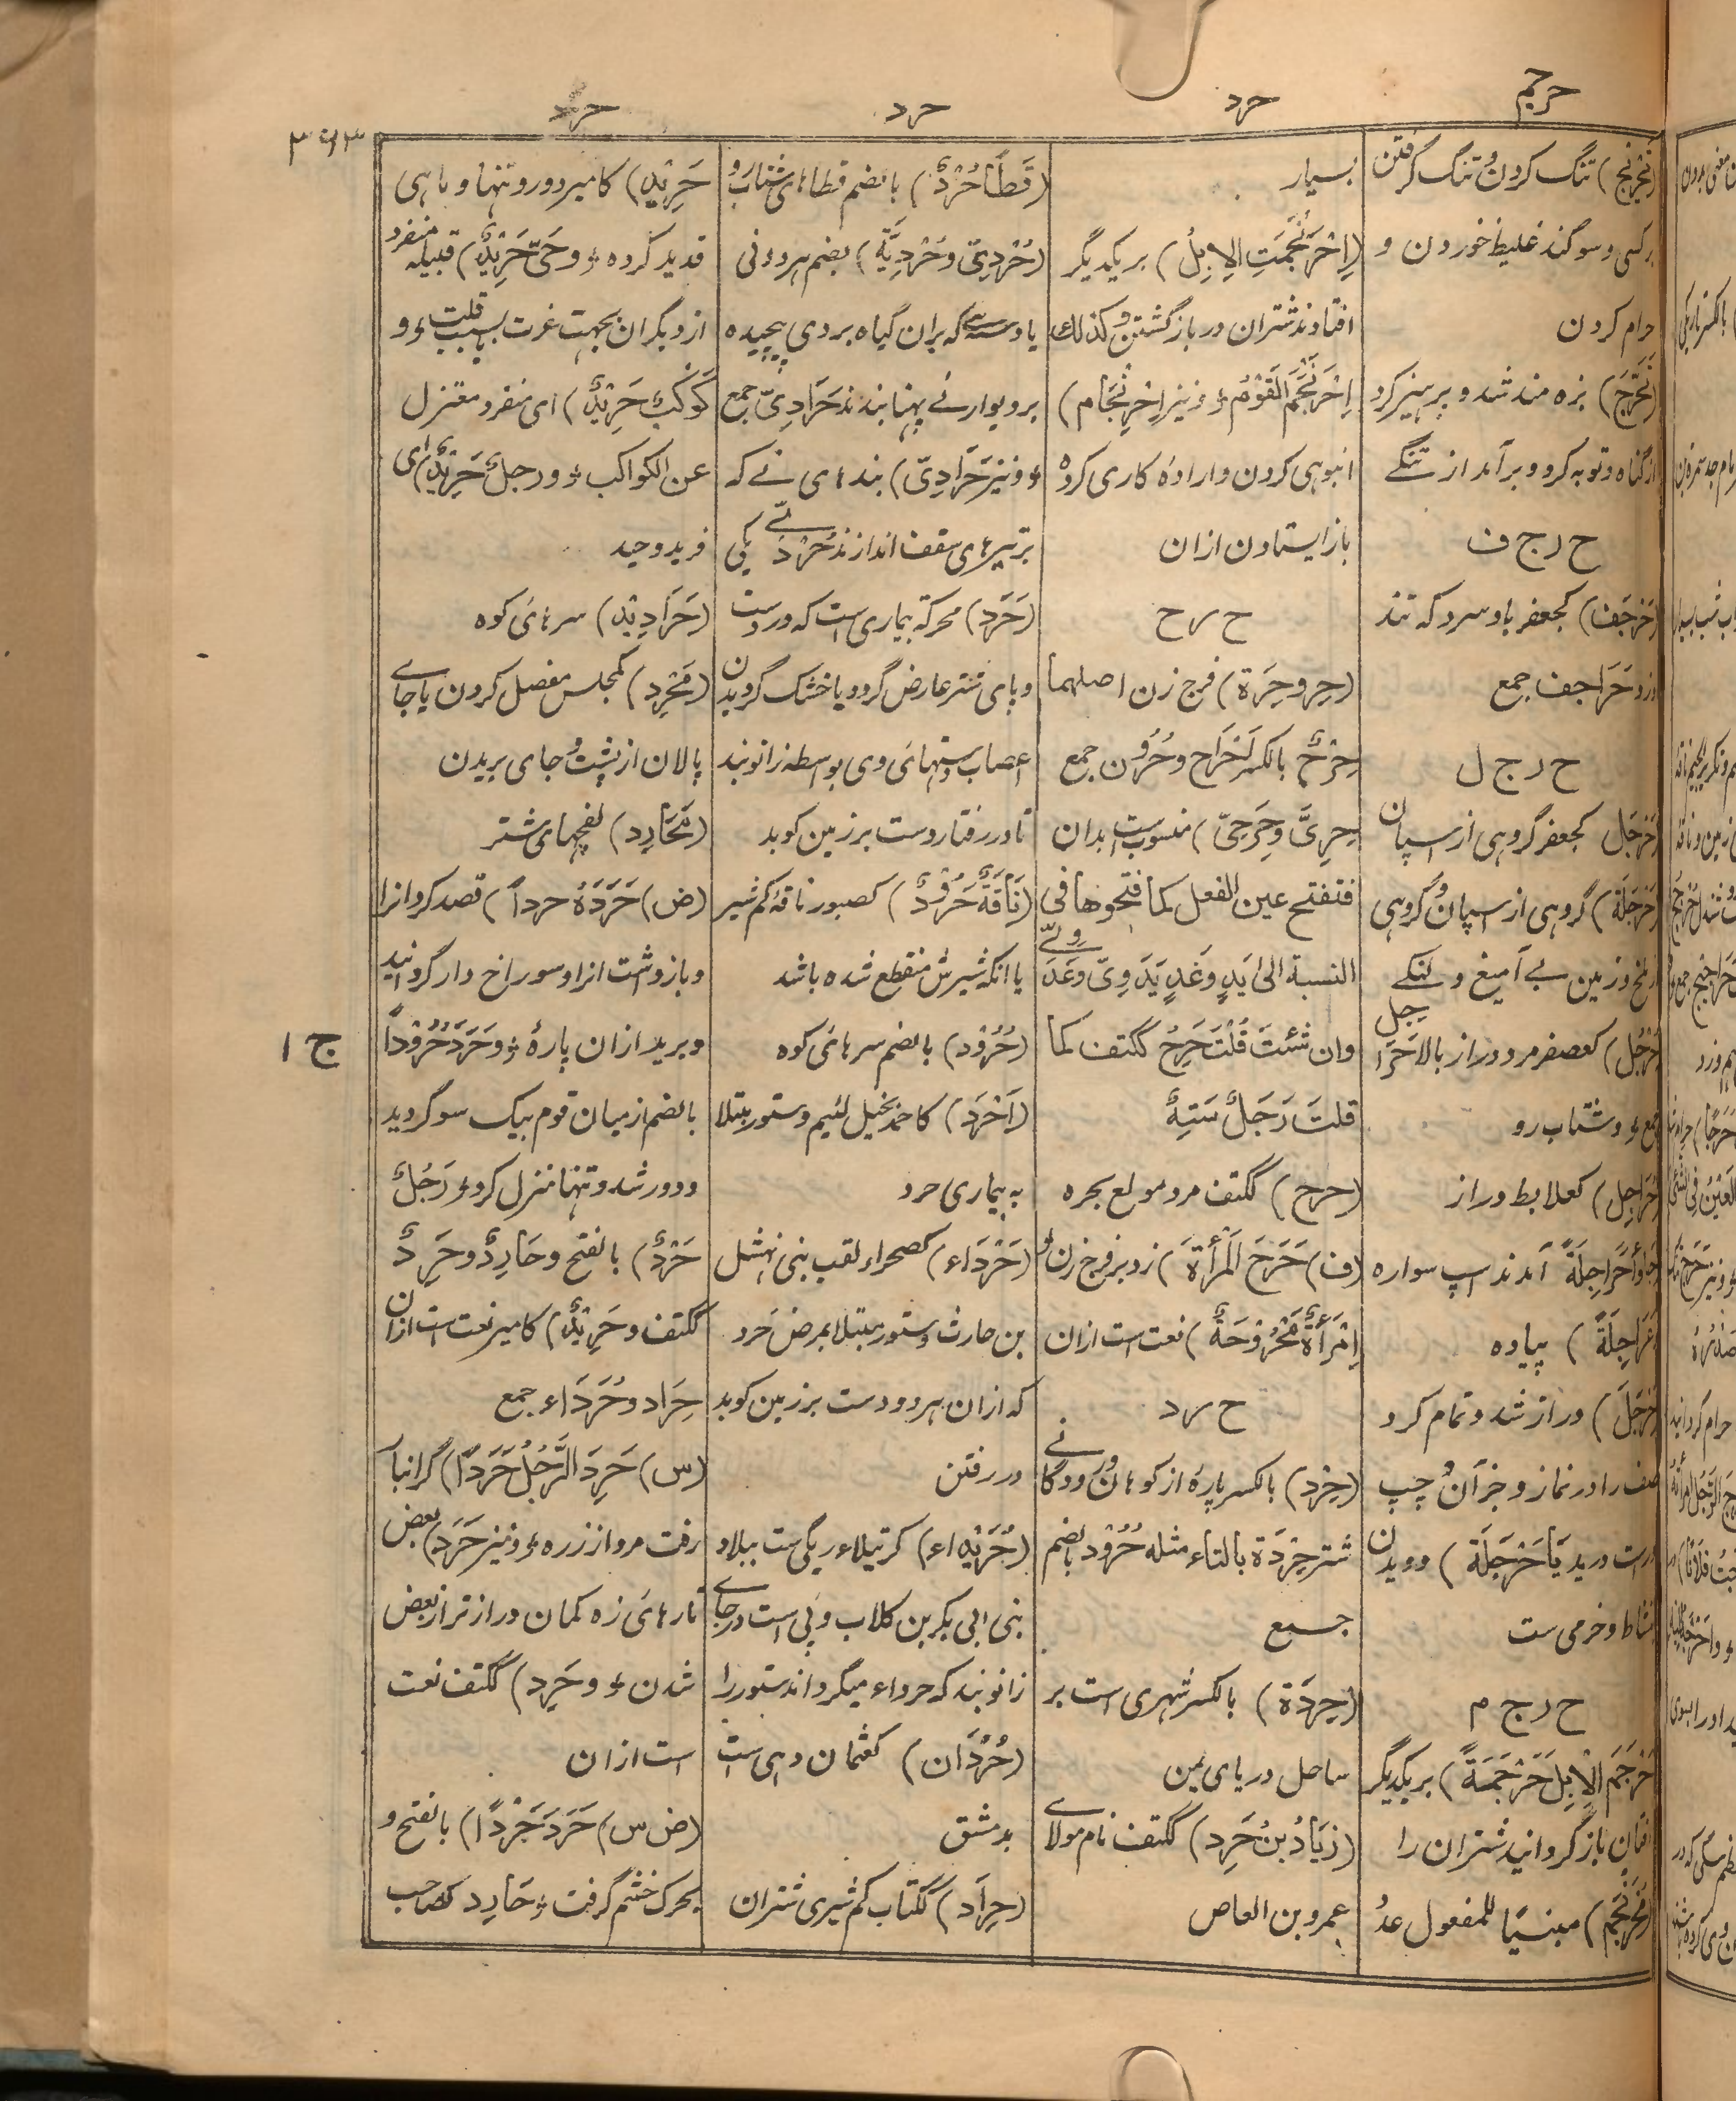 حرجم
حرد
حرد
حرد
۳۶۳
تنگ کردن و تنگ گرفتن
برکسی و سوگند غلیظ خوردن و
حرام کردن
بزه مند شد و پرهیز کرد
از گناه و توبه کرد و برآمد از تنگے
ح ر ج ف
کجعفر باد سرد که تند
وزد حَرَاجف جمع
ح ر ج ل
کجعفر گروهی از اسپان
گروهی از اسپان و گروهی
از ملخ و زمین بے آمیغ و لنگے
کعصفر مرد دراز بالا حَرَاجِل
جمع و شتاب رو
کعلابط دراز
آمدند اسپ سواره
پیاده
دراز شد و تمام کرد
صف را در نماز و جز آن و چپ
و راست دوید یا حَرْجَلَة ) دویدن
نشاط و خرمی ست
ح ر ج م
حَرْجَمَ الْاِبِلَ حَرْجَمَةً ) بریکدیگر
افتان بازگردانید شتران را
مبنیّا للمفعول عدد
بسیار
(اِحْرَنْجَمَتِ الاِبِلُ) بریکدیگر
افتادند شتران در بازگشتن و کذلك
اِحْرَنْجَمَ القَوْمُ و نیز اِحْرِنْجَام )
انبوهی کردن و اراده کاری کرده
باز ایستادن ازان
ح ر ح
(حِر و حِرَة) فرج زن اصلهما
حِرْحٌ بالکسر اَحْرَاح و حُرُون جمع
حِرِیّ و حِرَحِیّ ) منسوبست بدان
فتفتح عین الفعل کما فتحوها فی
النسبة الی یَدٍ و غَدٍ یَدَوِیّ و غَدَوِیّ
وان شئتَ قُلْتَ حَرِحٌ ککتف کما
قلتَ رَجَلٌ سَتِهٌ
(حرح) ککتف مرد مولع بحره
(ف) حَرَحَ الْمَرْأَةَ ) زد بر فرج زن و
اِمْرَأَةٌ مَحْرُوْحَةٌ ) نعت است ازان
ح ر د
(حِرْد) بالکسر پارۂ از کوهان و رودگانے
شتر حِرْدَة بالتاء مثله حُرُوْد بضم
جمع
(حِرْدَة) بالکسر شهری است بر
ساحل دریای یمن
(زِیَادُ بْنُ حَرِد) ککتف نام مولاے
عمرو بن العاص
(قَطًا حُرْدٌ) بالضم قطاهای شتاب رو
(حُرْدِیّ و حُرْدِیَّة) بضم هر دو نی
یا دسته که بران گیاه بردی پیچیده
بر دیوار نے پهنا بندند حَرَادِیّ جمع
و نیز حَرَادِیّ ) بندهای نے که
برتیرهای سقف اندازند حُرْدِیّ یکی
(حَرَد) محرکة بیماری است که در دست
و پای شتر عارض گردد یا خشک گردیدن
اعصاب دستهای وی بواسطه زانوبند
تا در رفتار دست بر زمین کوبد
(نَاقَةٌ حَرُوْدٌ) کصبور ناقۂ کم شیر
یا آنکه شیرش منقطع شده باشد
(حُرُوْد) بالضم سرهای کوه
(اَحْرَد) کاحمد بخیل لئیم و ستور مبتلا
به بیماری حرد
(حَرْدَاء) کصحراء لقب بنی نهشل
بن حارث و ستور مبتلا بمرض حَرد
که ازان هر دو دست بر زمین کوبد
در رفتن
(حُرَیْداء) کرتیلاء ریگی ست ببلاد
بنی ابی بکر بن کلاب و پی است در جاے
زانو بند که حرداء میگرداند ستور را
(حُرْدَان) کعثمان دهی ست
بدمشق
(حِرَاد) ککتاب کم شیری شتران
حَرِیْد) کامیر دور و تنها و ماهی
قدید کرده و حَیّ حَرِیْدٌ) قبیله منفرد
از دیگران بجهت عزت یا بسبب قلت و
کَوْکَبٌ حَرِیْدٌ) ای منفرد معتزل
عن الکواکب و رجلٌ حَرِیْدٌ) ای
فرید وحید
(حَرَادِیْد) سرهای کوه
(مَحْرِد) کمجلس مفصل گردن یا جاے
پالان از پشت و جای بریدن
(مَحَارِد) لفچهای شتر
(ض) حَرَدَهٗ حرداً ) قصد کرد انرا
و بازداشت انرا و سوراخ دار گردانید
و برید ازان پارۂ و حَرَدَ حُرُوْداً
بالضم از میان قوم بیک سو گردید
و دور شد و تنها منزل کرد رَجُلٌ
حَرْدٌ) بالفتح و حَارِدٌ و حَرِدٌ
ککتف و حَرِیْدٌ) کامیر نعت است ازان
حِرَاد و حُرَدَاء جمع
(س) حَرِدَ الرَّجُلُ حَرَدًا) گرانبار
رفت مرد از زره و نیز حَرَد) بعض
تارهای زه کمان درازتر از بعض
شدن و حَرِد) ککتف نعت
است ازان
(ض س) حَرَدَ حَرْدًا) بالفتح و
یحرک خشم گرفت و حَارِد کصاحب
ج ۱